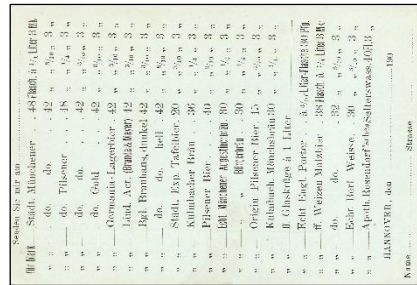 Senden Sie mir am
für Mark Städt. Münchener . . 48 Flasch. à ¾ Liter 3 Mk.
„ „ do. do. . . 42 „ „ 3 „
„ „ do. Pilsener . . 48 „ „ 3 „
„ „ do. do. . . 42 „ „ 3 „
„ „ do. Gold . . 42 „ „ 3 „
„ „ Germania-Lagerbier . 42 „ „ 3 „
„ „ Lind. Act. (Brande & Meyer) 42 „ „ 3 „
„ „ Bgl. Brauhaus, dunkel 42 „ „ 3 „
„ „ do. do. hell 42 „ „ 3 „
„ „ Städt. Exp. Tafelbier 20 „ „ 3 „
„ „ Kulmbacher Bräu . 36 „ „ 3 „
„ „ Pilsener Bier . . 40 „ „ 3 „
„ „ Echt Münchener Augustinerbräu 30 „ „ 3 „
„ „ „ „ Bürgerbräu . 30 „ „ 3 „
„ „ Origin. Pilsener Bier 15 „ „ 3 „
„ „ Kulmbach. Mönchsbräu 30 „ „ 3 „
„ „ ff. Glaskrüge à 1 Liter
„ „ Echt Engl. Porter . à Liter-Flasche 30 Pfg.
„ „ ff. Weizen Malzbier . 38 Flasch. à Liter 3 Mk.
„ „ do. do. . 32 „ „ 3 „
„ „ Echt Berl. Weisse . 30 „ „ 3 „
„ „ Apoth. Rosendorf Selterswass. 40 „ 3 „
HANNOVER, den 190
Name Strasse